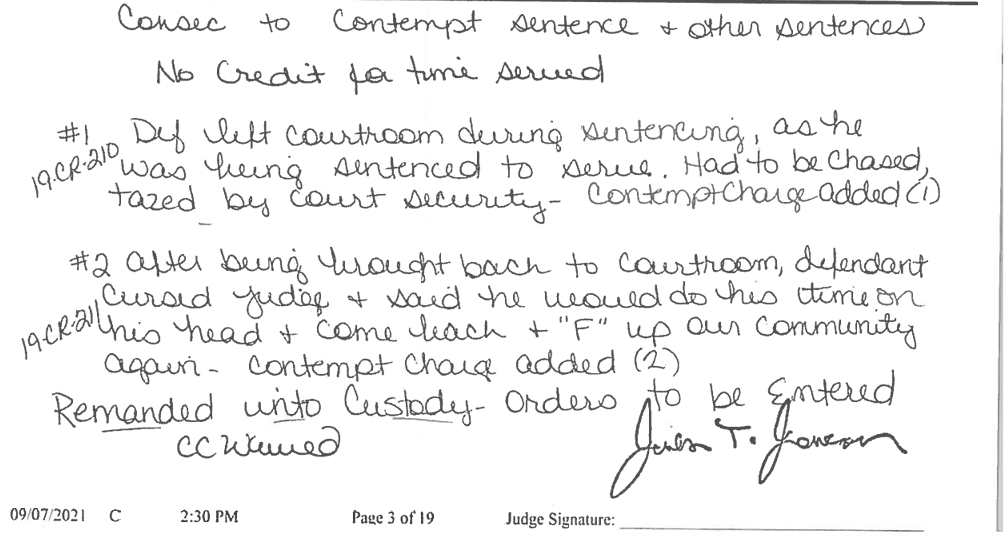 Consec to Contempt sentence + other sentences
No Credit for time served
#1 Def left courtroom during sentencing, as he
19-CR-210 was being sentenced to serve. Had to be chased,
tazed by court security - Contempt Charge added (1)
#2 After being brought back to courtroom, defendant
19-CR-211 Cursed Judge + said he would do his time on
his head + come back + "F" up our community
again - contempt charge added (2)
Remanded unto Custody - Orders to be Entered
CC Waived
09/07/2021 C 2:30 PM Page 3 of 19 Judge Signature: